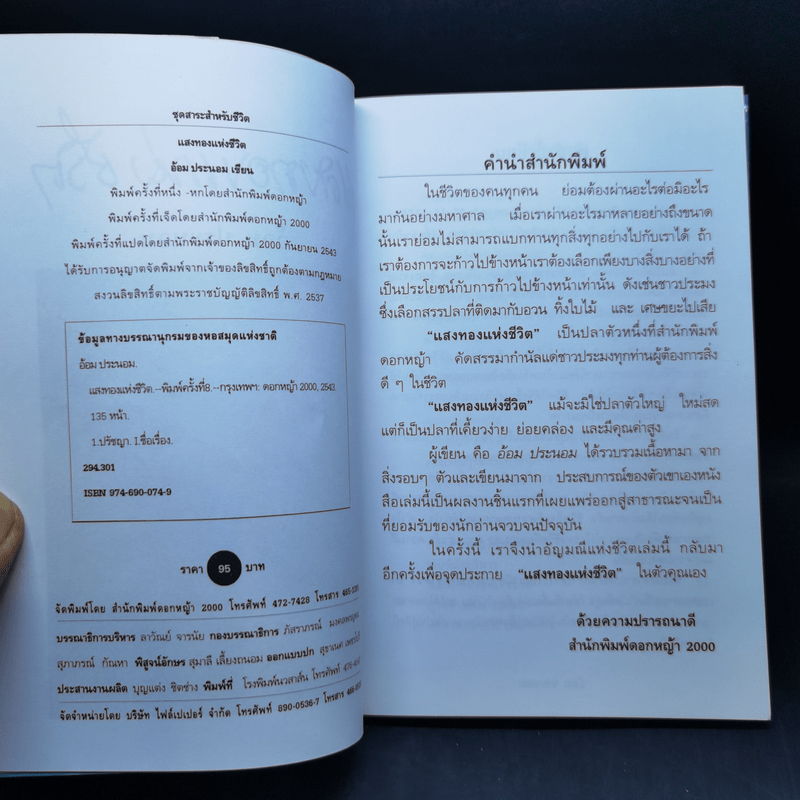 ชุดสาระสำหรับชีวิต
แสงทองแห่งชีวิต
อ้อม ประนอม เขียน
พิมพ์ครั้งที่หนึ่ง -หกโดยสำนักพิมพ์ดอกหญ้า
พิมพ์ครั้งที่เจ็ดโดยสำนักพิมพ์ดอกหญ้า 2000
พิมพ์ครั้งที่แปดโดยสำนักพิมพ์ดอกหญ้า 2000 กันยายน 2543
ได้รับการอนุญาตจัดพิมพ์จากเจ้าของลิขสิทธิ์ถูกต้องตามกฎหมาย
สงวนลิขสิทธิ์ตามพระราชบัญญัติลิขสิทธิ์ พ.ศ. 2537
ข้อมูลทางบรรณานุกรมของหอสมุดแห่งชาติ
อ้อม ประนอม.
แสงทองแห่งชีวิต.--พิมพ์ครั้งที่8.--กรุงเทพฯ: ดอกหญ้า 2000, 2543.
135 หน้า.
1.ปรัชญา. I.ชื่อเรื่อง.
294.301
ISBN 974-690-074-9
ราคา 95 บาท
จัดพิมพ์โดย สำนักพิมพ์ดอกหญ้า 2000 โทรศัพท์ 472-7428 โทรสาร
บรรณาธิการบริหาร ลาวัณย์ จารนัย กองบรรณาธิการ ภัสราภรณ์
สุภาภรณ์ กัณหา พิสูจน์อักษร สุมาลี เลี้ยงถนอม ออกแบบปก สุธาเนศ
ประสานงานผลิต บุญแต่ง ชิตช่าง พิมพ์ที่ โรงพิมพ์นวสาส์น โทรศัพท์
จัดจำหน่ายโดย บริษัท ไฟล์เปเปอร์ จำกัด โทรศัพท์ 890-0536-7 โทรสาร
คำนำสำนักพิมพ์
ในชีวิตของคนทุกคน ย่อมต้องผ่านอะไรต่อมิอะไร
มากันอย่างมหาศาล เมื่อเราผ่านอะไรมาหลายอย่างถึงขนาด
นั้นเราย่อมไม่สามารถแบกทานทุกสิ่งทุกอย่างไปกับเราได้ ถ้า
เราต้องการจะก้าวไปข้างหน้าเราต้องเลือกเพียงบางสิ่งบางอย่างที่
เป็นประโยชน์กับการก้าวไปข้างหน้าเท่านั้น ดังเช่นชาวประมง
ซึ่งเลือกสรรปลาที่ติดมากับอวน ทิ้งใบไม้ และ เศษขยะไปเสีย
"แสงทองแห่งชีวิต" เป็นปลาตัวหนึ่งที่สำนักพิมพ์
ดอกหญ้า คัดสรรมากำนัลแด่ชาวประมงทุกท่านผู้ต้องการสิ่ง
ดี ๆ ในชีวิต
"แสงทองแห่งชีวิต" แม้จะมิใช่ปลาตัวใหญ่ ใหม่สด
แต่ก็เป็นปลาที่เคี้ยวง่าย ย่อยคล่อง และมีคุณค่าสูง
ผู้เขียน คือ อ้อม ประนอม ได้รวบรวมเนื้อหามา จาก
สิ่งรอบๆ ตัวและเขียนมาจาก ประสบการณ์ของตัวเขาเองหนัง
สือเล่มนี้เป็นผลงานชิ้นแรกที่เผยแพร่ออกสู่สาธารณะจนเป็น
ที่ยอมรับของนักอ่านจวบจนปัจจุบัน
ในครั้งนี้ เราจึงนำอัญมณีแห่งชีวิตเล่มนี้ กลับมา
อีกครั้งเพื่อจุดประกาย "แสงทองแห่งชีวิต" ในตัวคุณเอง
ด้วยความปรารถนาดี
สำนักพิมพ์ดอกหญ้า 2000